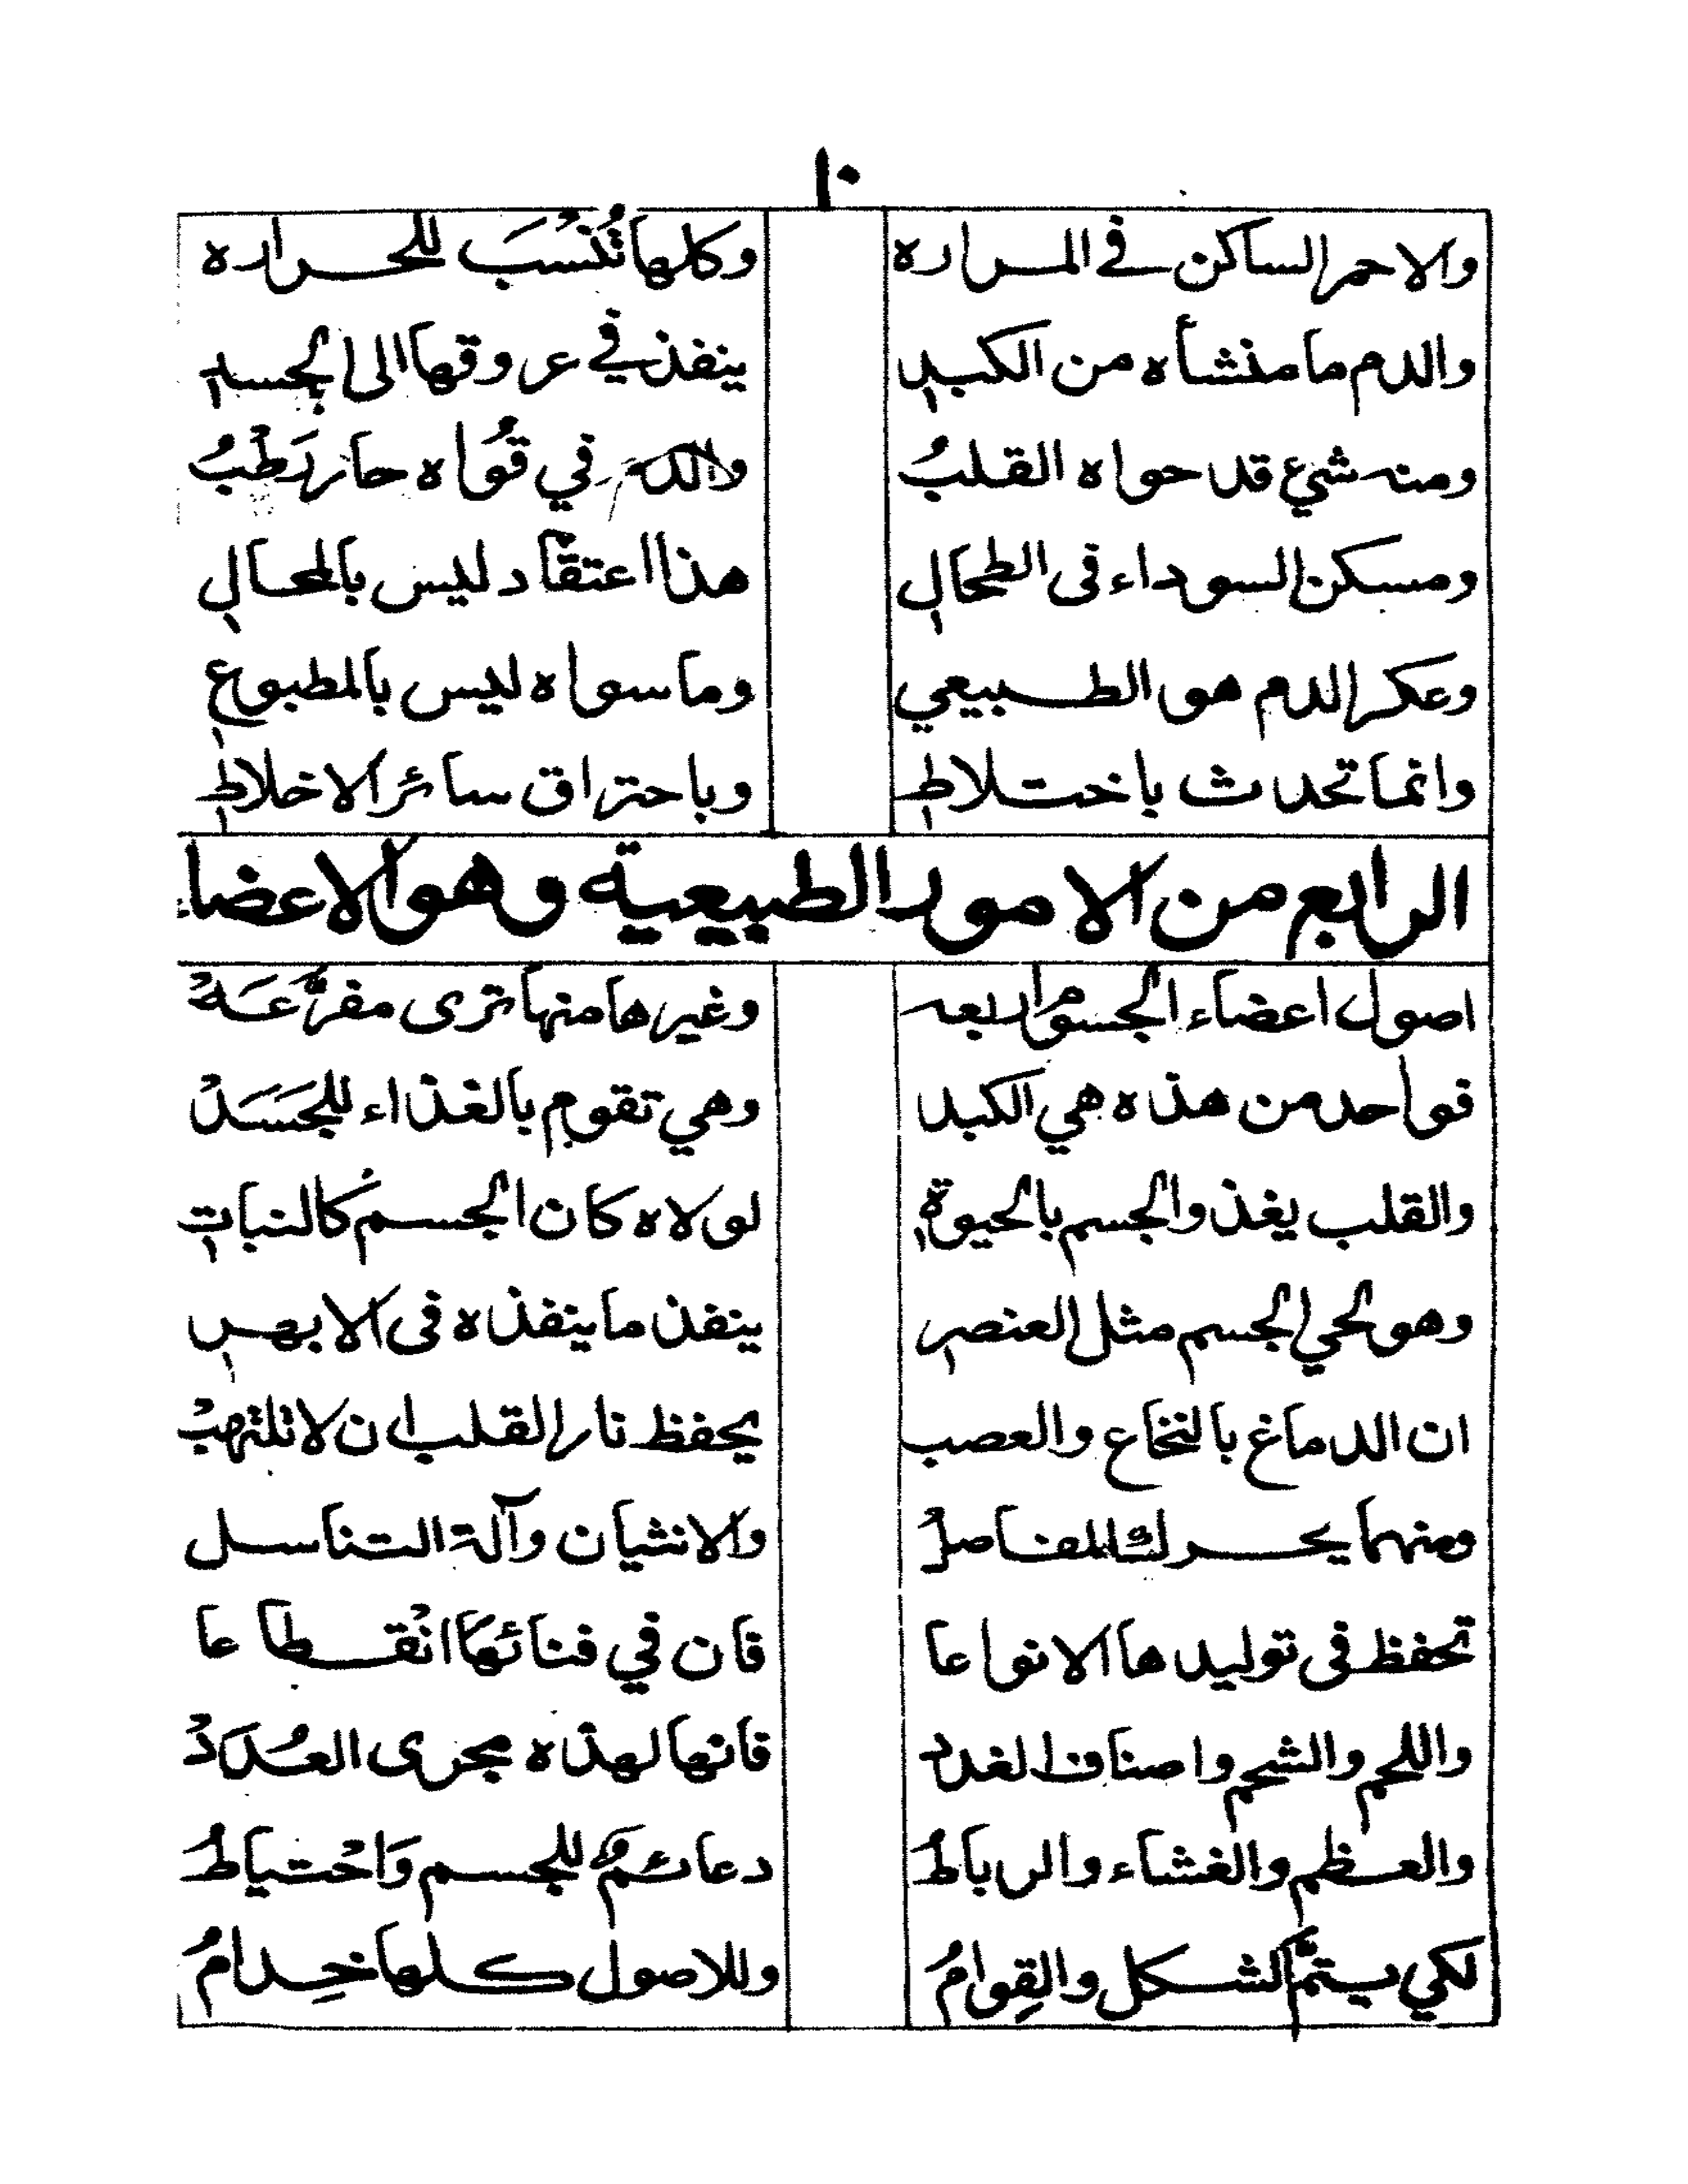 ١٠
والاحمر الساكن في المراره وكلها تُنْسَبُ للحراره
والدم ما منشأه من الكبدِ ينفذ في عروقها الى الجسدِ
ومنه شيء قد حواه القلبُ والدم في قُواه حار رَطْبُ
ومسكن السوداء في الطحالِ هذا اعتقاد ليس بالمحالِ
وعكر الدم هو الطبيعي وما سواه ليس بالمطبوعِ
وانما تحدث باختلاطِ وباحتراق سائر الاخلاطِ
الرابع من الامور الطبيعية وهو الاعضاء
اصول اعضاء الجسوم اربعه وغيرها منها ترى مفرَّعَهْ
فواحد من هذه هي الكبد وهي تقوم بالغذاء للجَسَدْ
والقلب يغذو الجسم بالحيوةِ لولاه كان الجسمُ كالنباتِ
وهو لحي الجسم مثل العنصرِ ينفذ ما ينفذه في الابهرِ
ان الدماغ بالنخاع والعصب يحفظ نار القلب ان لا تلتهبْ
ومنهما يحرك المفاصلُ والانثيان وآلة التناسل
تحفظ في توليدها الانواعا فان في فنائها انْقطاعا
واللحم والشحم واصناف الغدد فانها لهذه مجرى العُدَدْ
والعظم والغشاء والرباطُ دعائمٌ للجسم وَاحْتياطُ
لكي يتمَّ الشكل والقِوامُ وللاصول كلها خِدامُ